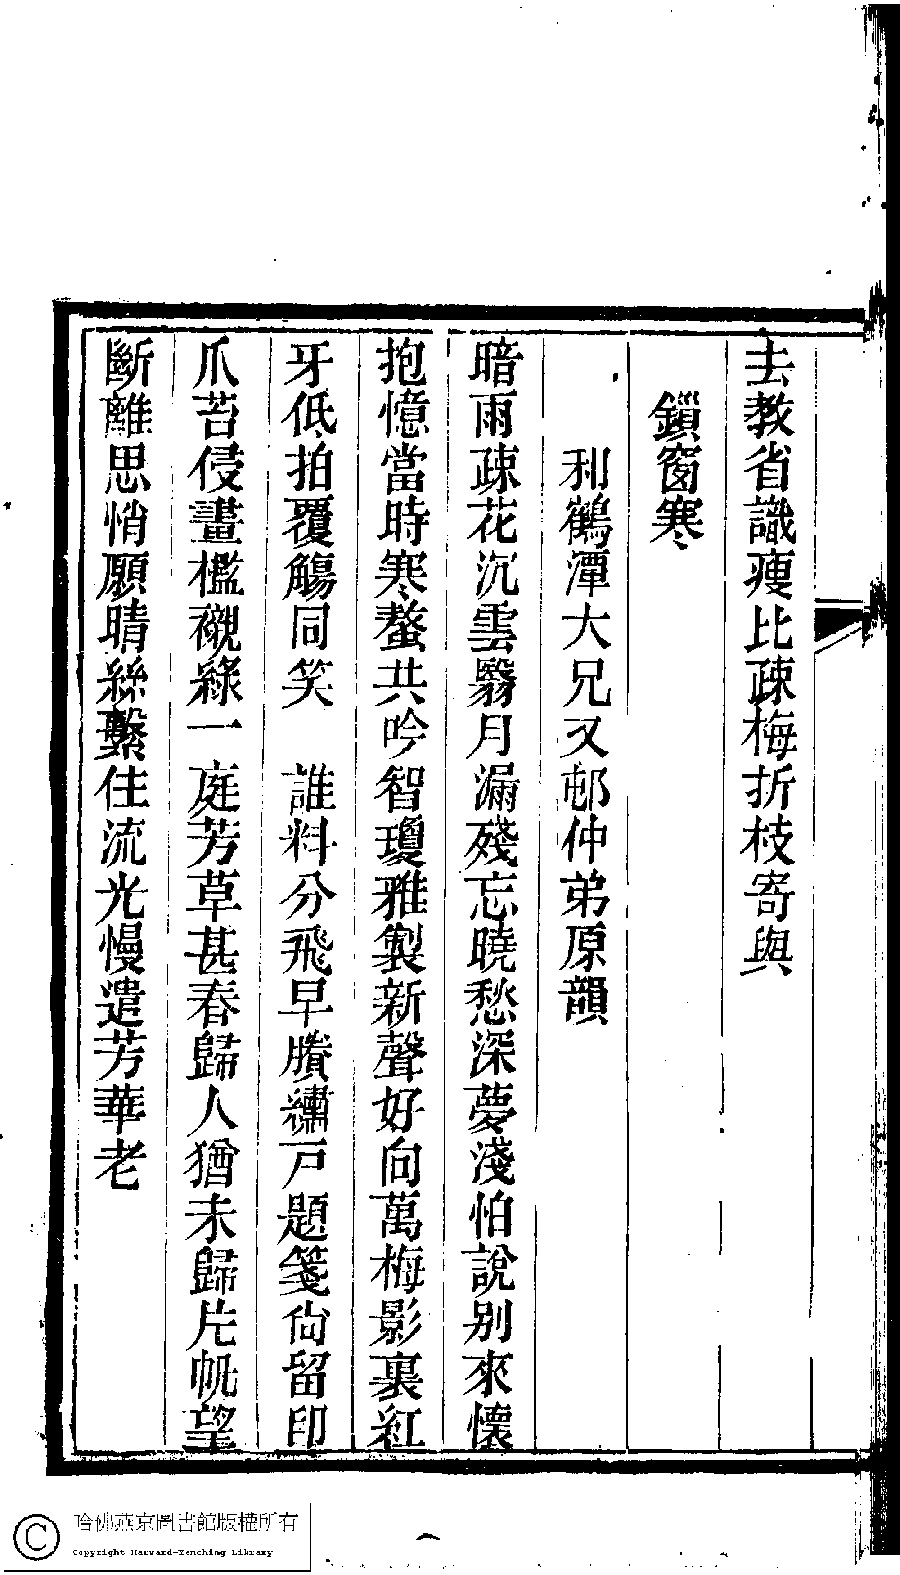 去教省識瘦比疎梅折枝寄與
鎖窗寒
和鶴潭大兄又邨仲弟原韻
暗雨疎花沉雲翳月漏殘忘曉愁深夢淺怕說別來懷
抱憶當時寒螯共吟智瓊雅製新聲好向萬梅影裏紅
牙低拍覆觴同笑　誰料分飛早賸繡戸題箋尙留印
爪苔侵畫檻襯綠一庭芳草甚春歸人猶未歸片帆望
斷離思悄願晴絲繫住流光慢遣芳華老
哈佛燕京圖書館版權所有
Copyright Harvard-Yenching Library